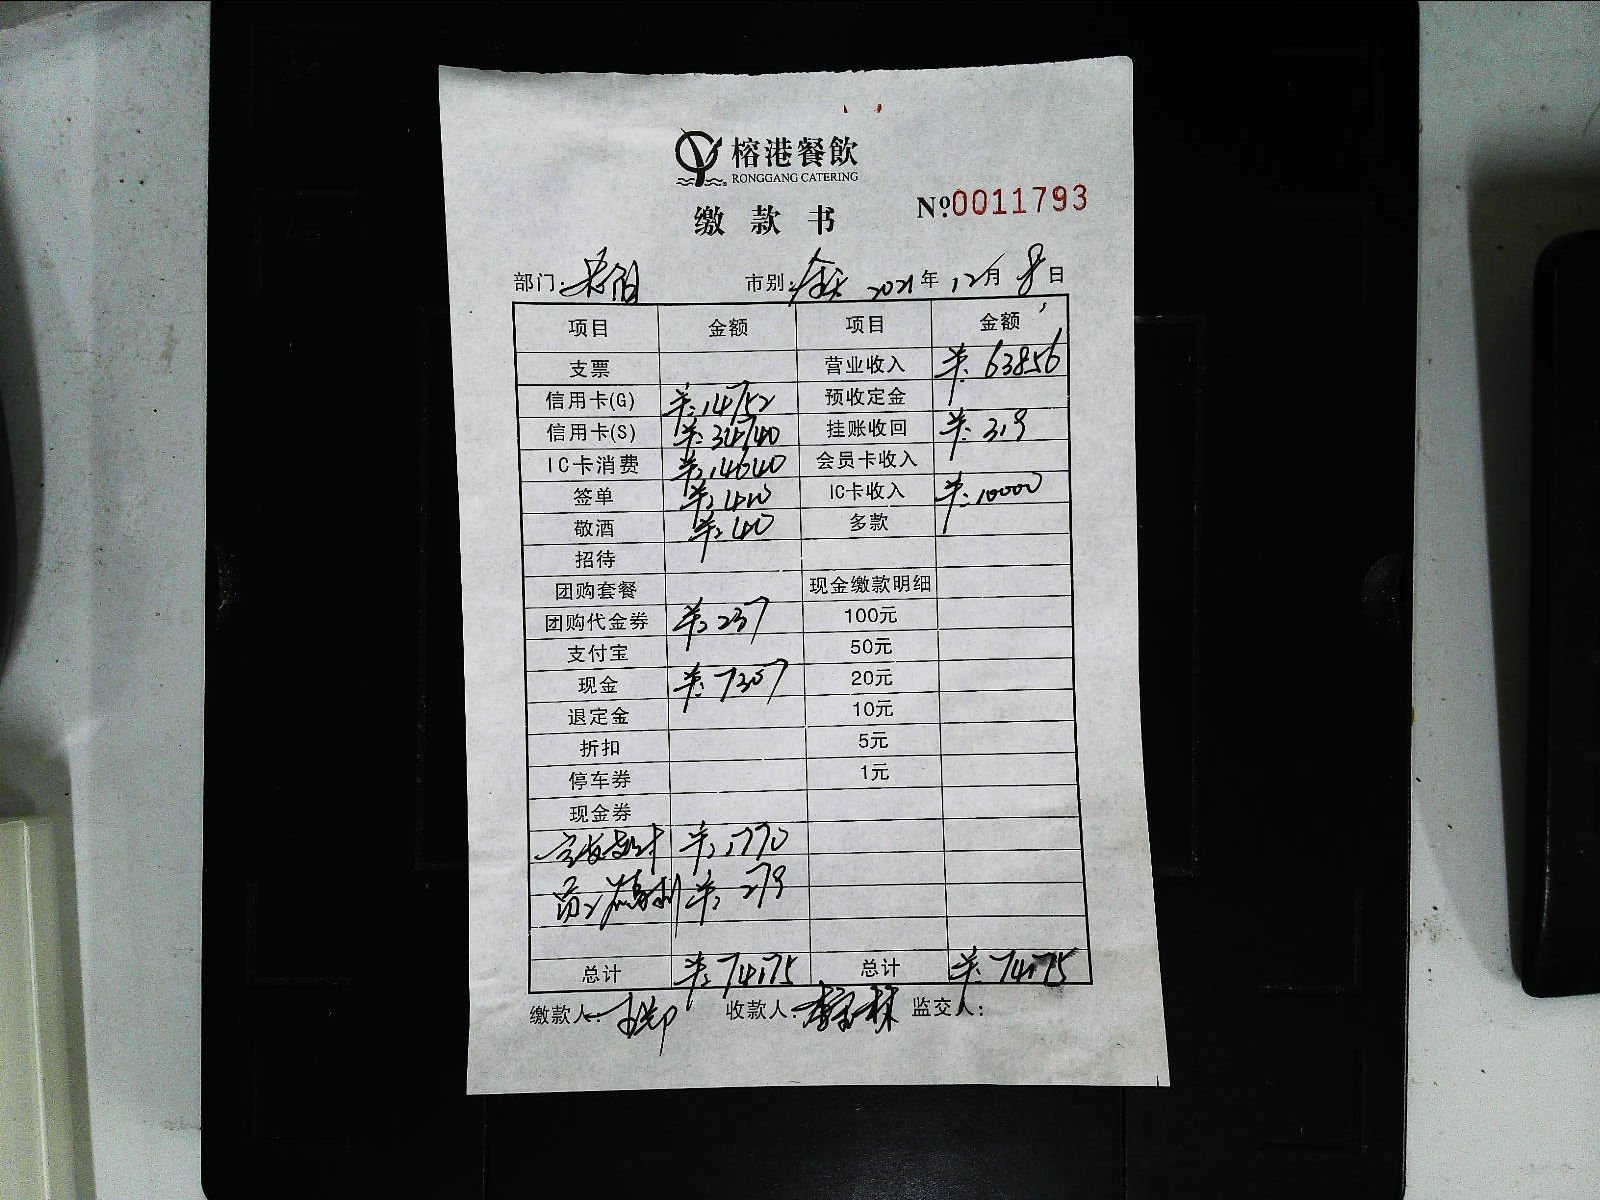 榕港餐飲
RONGGANG CATERING
缴款书 №0011793
部门: 市别: 全天 2021年 12月 8日
项目 金额 项目 金额
支票 营业收入 ¥:63856
信用卡(G) ¥:14752 预收定金
信用卡(S) ¥:34740 挂账收回 ¥:319
IC卡消费 ¥:14640 会员卡收入
签单 ¥:410 IC卡收入 ¥:10000
敬酒 ¥:40 多款
招待
团购套餐 现金缴款明细
团购代金券 ¥:237 100元
支付宝 50元
现金 ¥:7307 20元
退定金 10元
折扣 5元
停车券 1元
现金券
¥:1770
¥:279
总计 ¥:74175 总计 ¥:74175
缴款人: 收款人: 监交人: